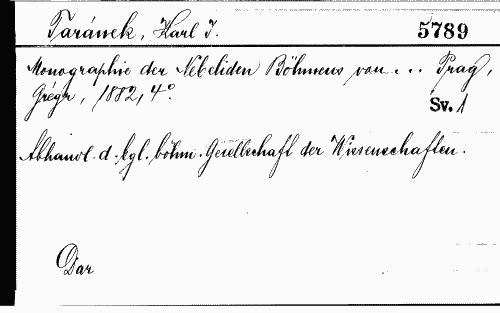 Taránek, Karl J. 5789
Monographie der Nebeliden Böhmens von ... Prag,
Grégr, 1882, 4°.
Sv. 1
Abhandl. d. kgl. böhm. Gesellschaft der Wissenschaften.
Dar